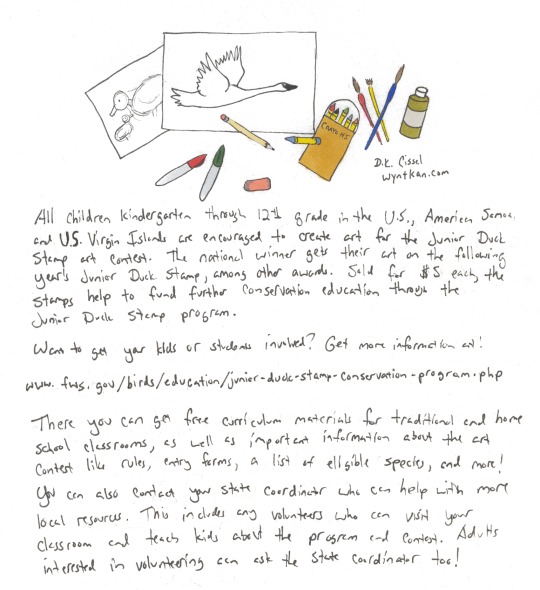 CRAYONS
D.K. Cissel
wyntkan.com
All children kindergarten through 12th grade in the U.S., American Samoa,
and U.S. Virgin Islands are encouraged to create art for the Junior Duck
Stamp art contest. The national winner gets their art on the following
year's Junior Duck Stamp, among other awards. Sold for $5 each, the
stamps help to fund further conservation education through the
Junior Duck Stamp program.
Want to get your kids or students involved? Get more information at!
www.fws.gov/birds/education/junior-duck-stamp-conservation-program.php
There you can get free curriculum materials for traditional and home
school classrooms, as well as important information about the art
contest like rules, entry forms, a list of elligible species, and more!
You can also contact your state coordinator who can help with more
local resources. This includes any volunteers who can visit your
classroom and teach kids about the program and contest. Adults
interested in volunteering can ask the state coordinator too!